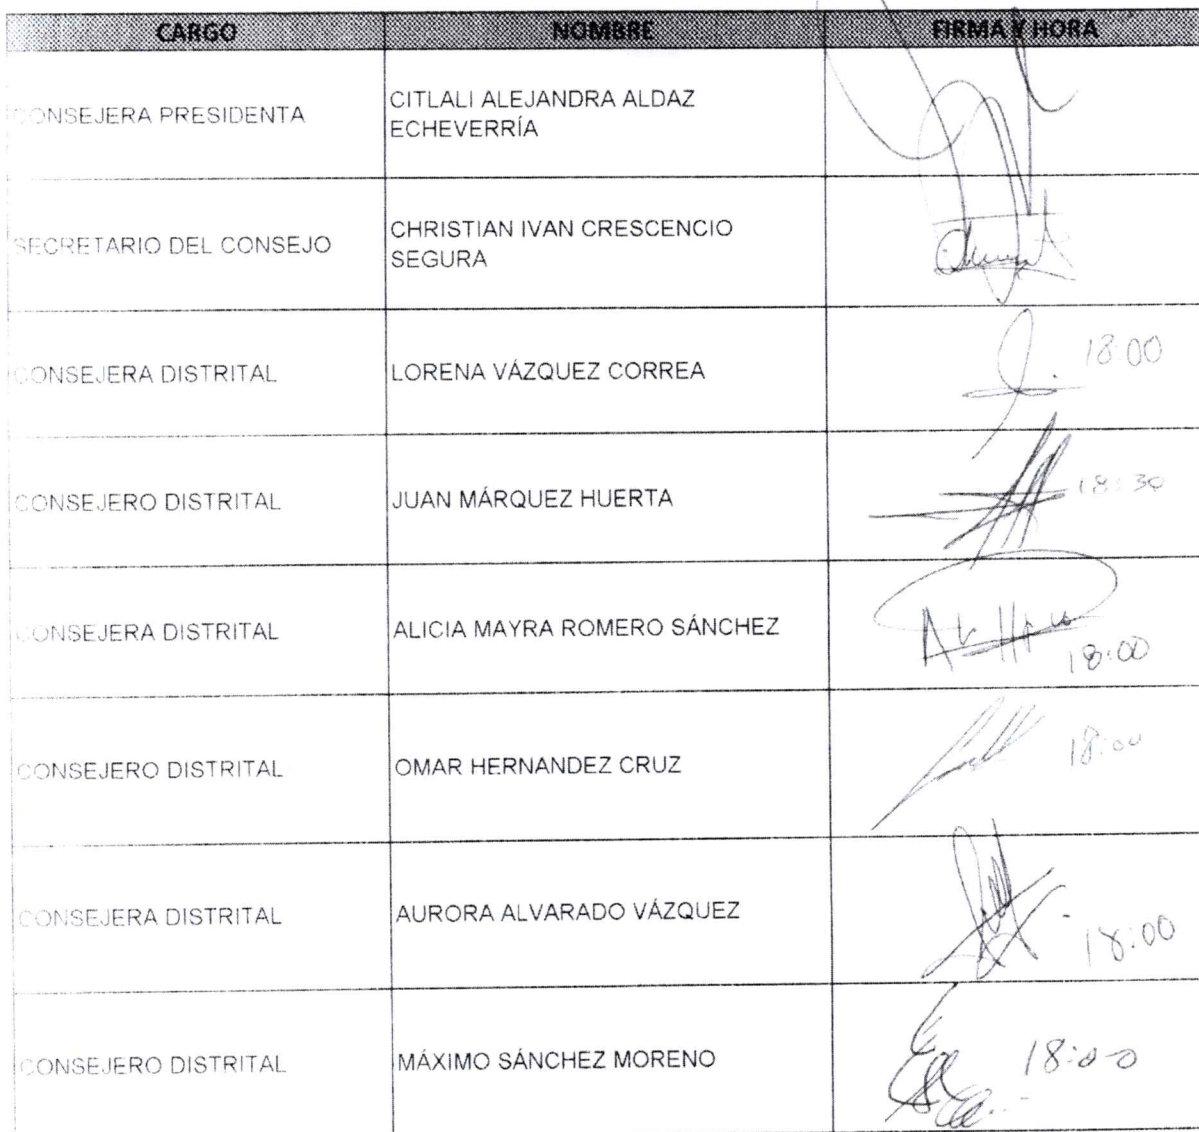 CARGO NOMBRE FIRMA Y HORA
CONSEJERA PRESIDENTA CITLALI ALEJANDRA ALDAZ
ECHEVERRÍA
SECRETARIO DEL CONSEJO CHRISTIAN IVAN CRESCENCIO
SEGURA
CONSEJERA DISTRITAL LORENA VÁZQUEZ CORREA 18:00
CONSEJERO DISTRITAL JUAN MÁRQUEZ HUERTA 18:30
CONSEJERA DISTRITAL ALICIA MAYRA ROMERO SÁNCHEZ 18:00
CONSEJERO DISTRITAL OMAR HERNANDEZ CRUZ 18:00
CONSEJERA DISTRITAL AURORA ALVARADO VÁZQUEZ 18:00
CONSEJERO DISTRITAL MÁXIMO SÁNCHEZ MORENO 18:00